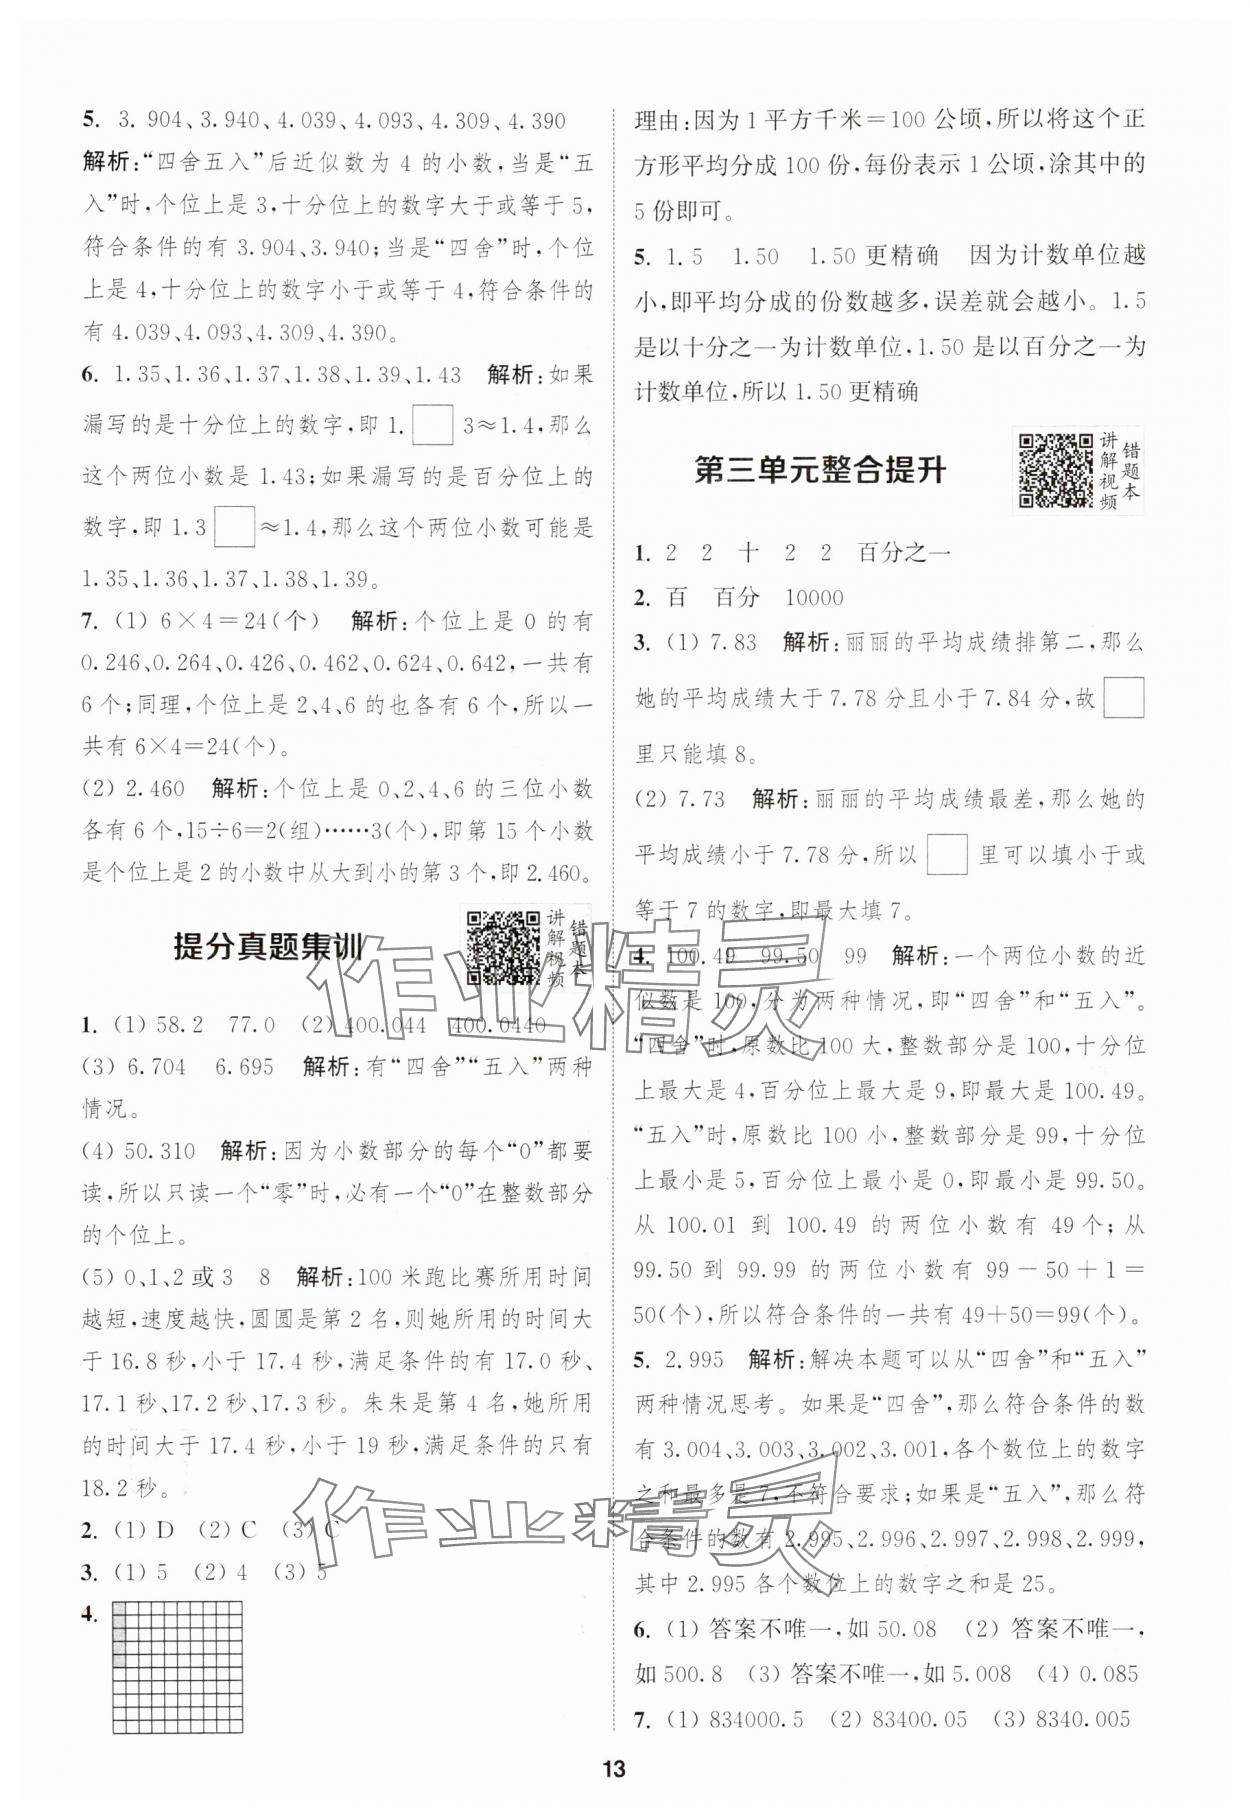 5. 3.904、3.940、4.039、4.093、4.309、4.390
解析:“四舍五入”后近似数为 4 的小数,当是“五
入”时,个位上是 3,十分位上的数字大于或等于 5,
符合条件的有 3.904、3.940;当是“四舍”时,个位
上是 4,十分位上的数字小于或等于 4,符合条件的
有 4.039、4.093、4.309、4.390。
6. 1.35、1.36、1.37、1.38、1.39、1.43 解析:如果
漏写的是十分位上的数字,即 1.□3≈1.4,那么
这个两位小数是 1.43;如果漏写的是百分位上的
数字,即 1.3□≈1.4,那么这个两位小数可能是
1.35、1.36、1.37、1.38、1.39。
7. (1) 6×4=24(个) 解析:个位上是 0 的有
0.246、0.264、0.426、0.462、0.624、0.642,一共有
6 个;同理,个位上是 2、4、6 的也各有 6 个,所以一
共有 6×4=24(个)。
(2) 2.460 解析:个位上是 0、2、4、6 的三位小数
各有 6 个,15÷6=2(组)……3(个),即第 15 个小数
是个位上是 2 的小数中从大到小的第 3 个,即 2.460。
提分真题集训
讲解视频
错题本
1. (1) 58.2 77.0 (2) 400.044 400.0440
(3) 6.704 6.695 解析:有“四舍”“五入”两种
情况。
(4) 50.310 解析:因为小数部分的每个“0”都要
读,所以只读一个“零”时,必有一个“0”在整数部分
的个位上。
(5) 0、1、2 或 3 8 解析:100 米跑比赛所用时间
越短,速度越快,圆圆是第 2 名,则她所用的时间大
于 16.8 秒,小于 17.4 秒,满足条件的有 17.0 秒、
17.1 秒、17.2 秒、17.3 秒。朱朱是第 4 名,她所用
的时间大于 17.4 秒,小于 19 秒,满足条件的只有
18.2 秒。
2. (1) D (2) C (3) C
3. (1) 5 (2) 4 (3) 5
4.
理由:因为 1 平方千米=100 公顷,所以将这个正
方形平均分成 100 份,每份表示 1 公顷,涂其中的
5 份即可。
5. 1.5 1.50 1.50 更精确 因为计数单位越
小,即平均分成的份数越多,误差就会越小。1.5
是以十分之一为计数单位,1.50 是以百分之一为
计数单位,所以 1.50 更精确
第三单元整合提升
讲解视频
错题本
1. 2 2 十 2 2 百分之一
2. 百 百分 10000
3. (1) 7.83 解析:丽丽的平均成绩排第二,那么
她的平均成绩大于 7.78 分且小于 7.84 分,故□
里只能填 8。
(2) 7.73 解析:丽丽的平均成绩最差,那么她的
平均成绩小于 7.78 分,所以□里可以填小于或
等于 7 的数字,即最大填 7。
4. 100.49 99.50 99 解析:一个两位小数的近
似数是 100,分为两种情况,即“四舍”和“五入”。
“四舍”时,原数比 100 大,整数部分是 100,十分位
上最大是 4,百分位上最大是 9,即最大是 100.49。
“五入”时,原数比 100 小,整数部分是 99,十分位
上最小是 5,百分位上最小是 0,即最小是 99.50。
从 100.01 到 100.49 的两位小数有 49 个;从
99.50 到 99.99 的两位小数有 99－50＋1＝
50(个),所以符合条件的一共有 49+50=99(个)。
5. 2.995 解析:解决本题可以从“四舍”和“五入”
两种情况思考。如果是“四舍”,那么符合条件的数
有 3.004、3.003、3.002、3.001,各个数位上的数字
之和最多是 7,不符合要求;如果是“五入”,那么符
合条件的数有 2.995、2.996、2.997、2.998、2.999,
其中 2.995 各个数位上的数字之和是 25。
6. (1) 答案不唯一,如 50.08 (2) 答案不唯一,
如 500.8 (3) 答案不唯一,如 5.008 (4) 0.085
7. (1) 834000.5 (2) 83400.05 (3) 8340.005
作业精灵
作业精灵
13